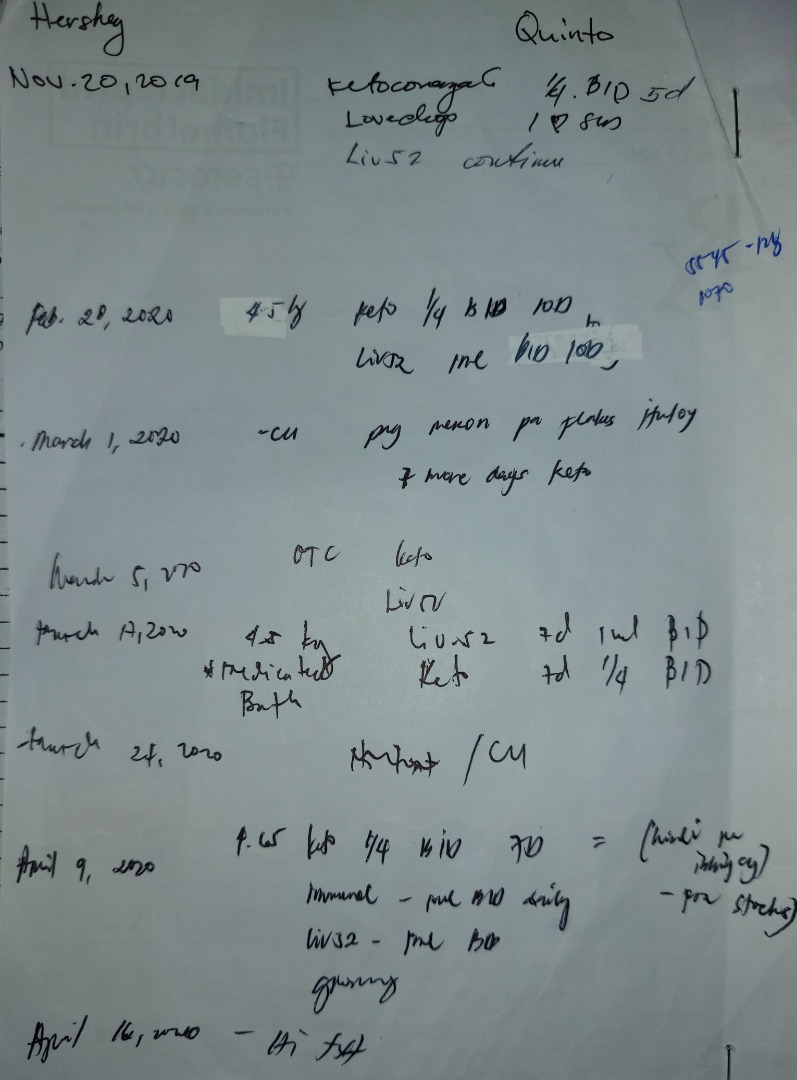 Hershey Quinto
Nov. 20, 2019 Ketoconazole 1/4 . BID 5d
Lovedrop
Liv52 continue
Feb. 28, 2020 4.5 kg keto 1/4 BID 10D
Liv52 1ml BID 10D
March 1, 2020 -CU pag meron pa flakes ituloy
7 more days keto
March 5, 2020 OTC keto
Liv52
March 17, 2020 4.8 kg Liv.52 7d 1ml BID
*Medicated Keto 7d 1/4 BID
Bath
March 24, 2020 / CU
April 9, 2020 keto 1/4 BID 7D = (hindi pa
ibibigay)
Immunol - 1ml BID daily - for stocks)
Liv52 - 1ml BID
grooming
April 16, 2020 -